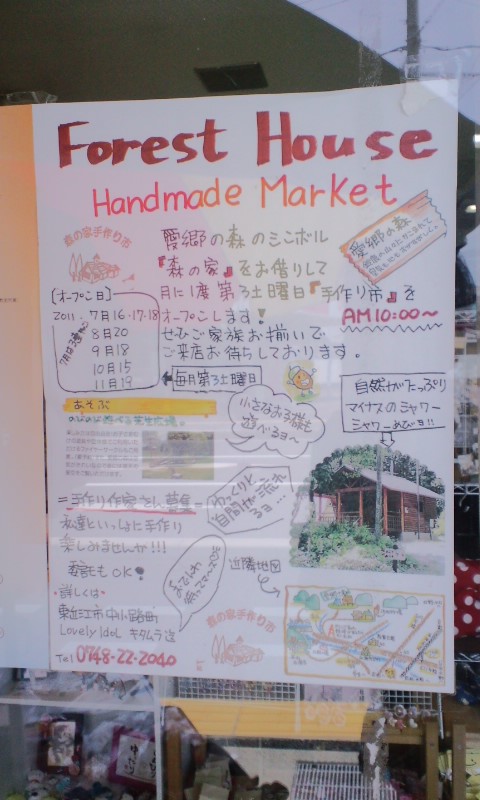 Forest House
Handmade Market
森の家手作り市
愛郷の森のシンボル
『森の家』をお借りして
月に1度第3土曜日『手作り市』を
オープンします!
AM10:00〜
ぜひご家族お揃いで
ご来店お待ちしております。
愛郷の森
[オープン日]
2011. 7月16・17・18
8月20
9月18
10月15
11月19
毎月第3土曜日
あそぶ
のびのび遊べる芝生広場。
小さなお子様も
遊べるヨ〜
自然がたっぷり
マイナスのミャワー
ミャワーあびヨ!!
ゆっくりと
自間が流れ
るヨ...
=手作り作家さん募集=
私達といっしょに手作り
楽しみませんか!!!
委託もOK!
詳しくは
東近江市中小路町
Lovely Idol キタムラ迄
Tel 0748-22-2040
近隣地図
森の家手作り市